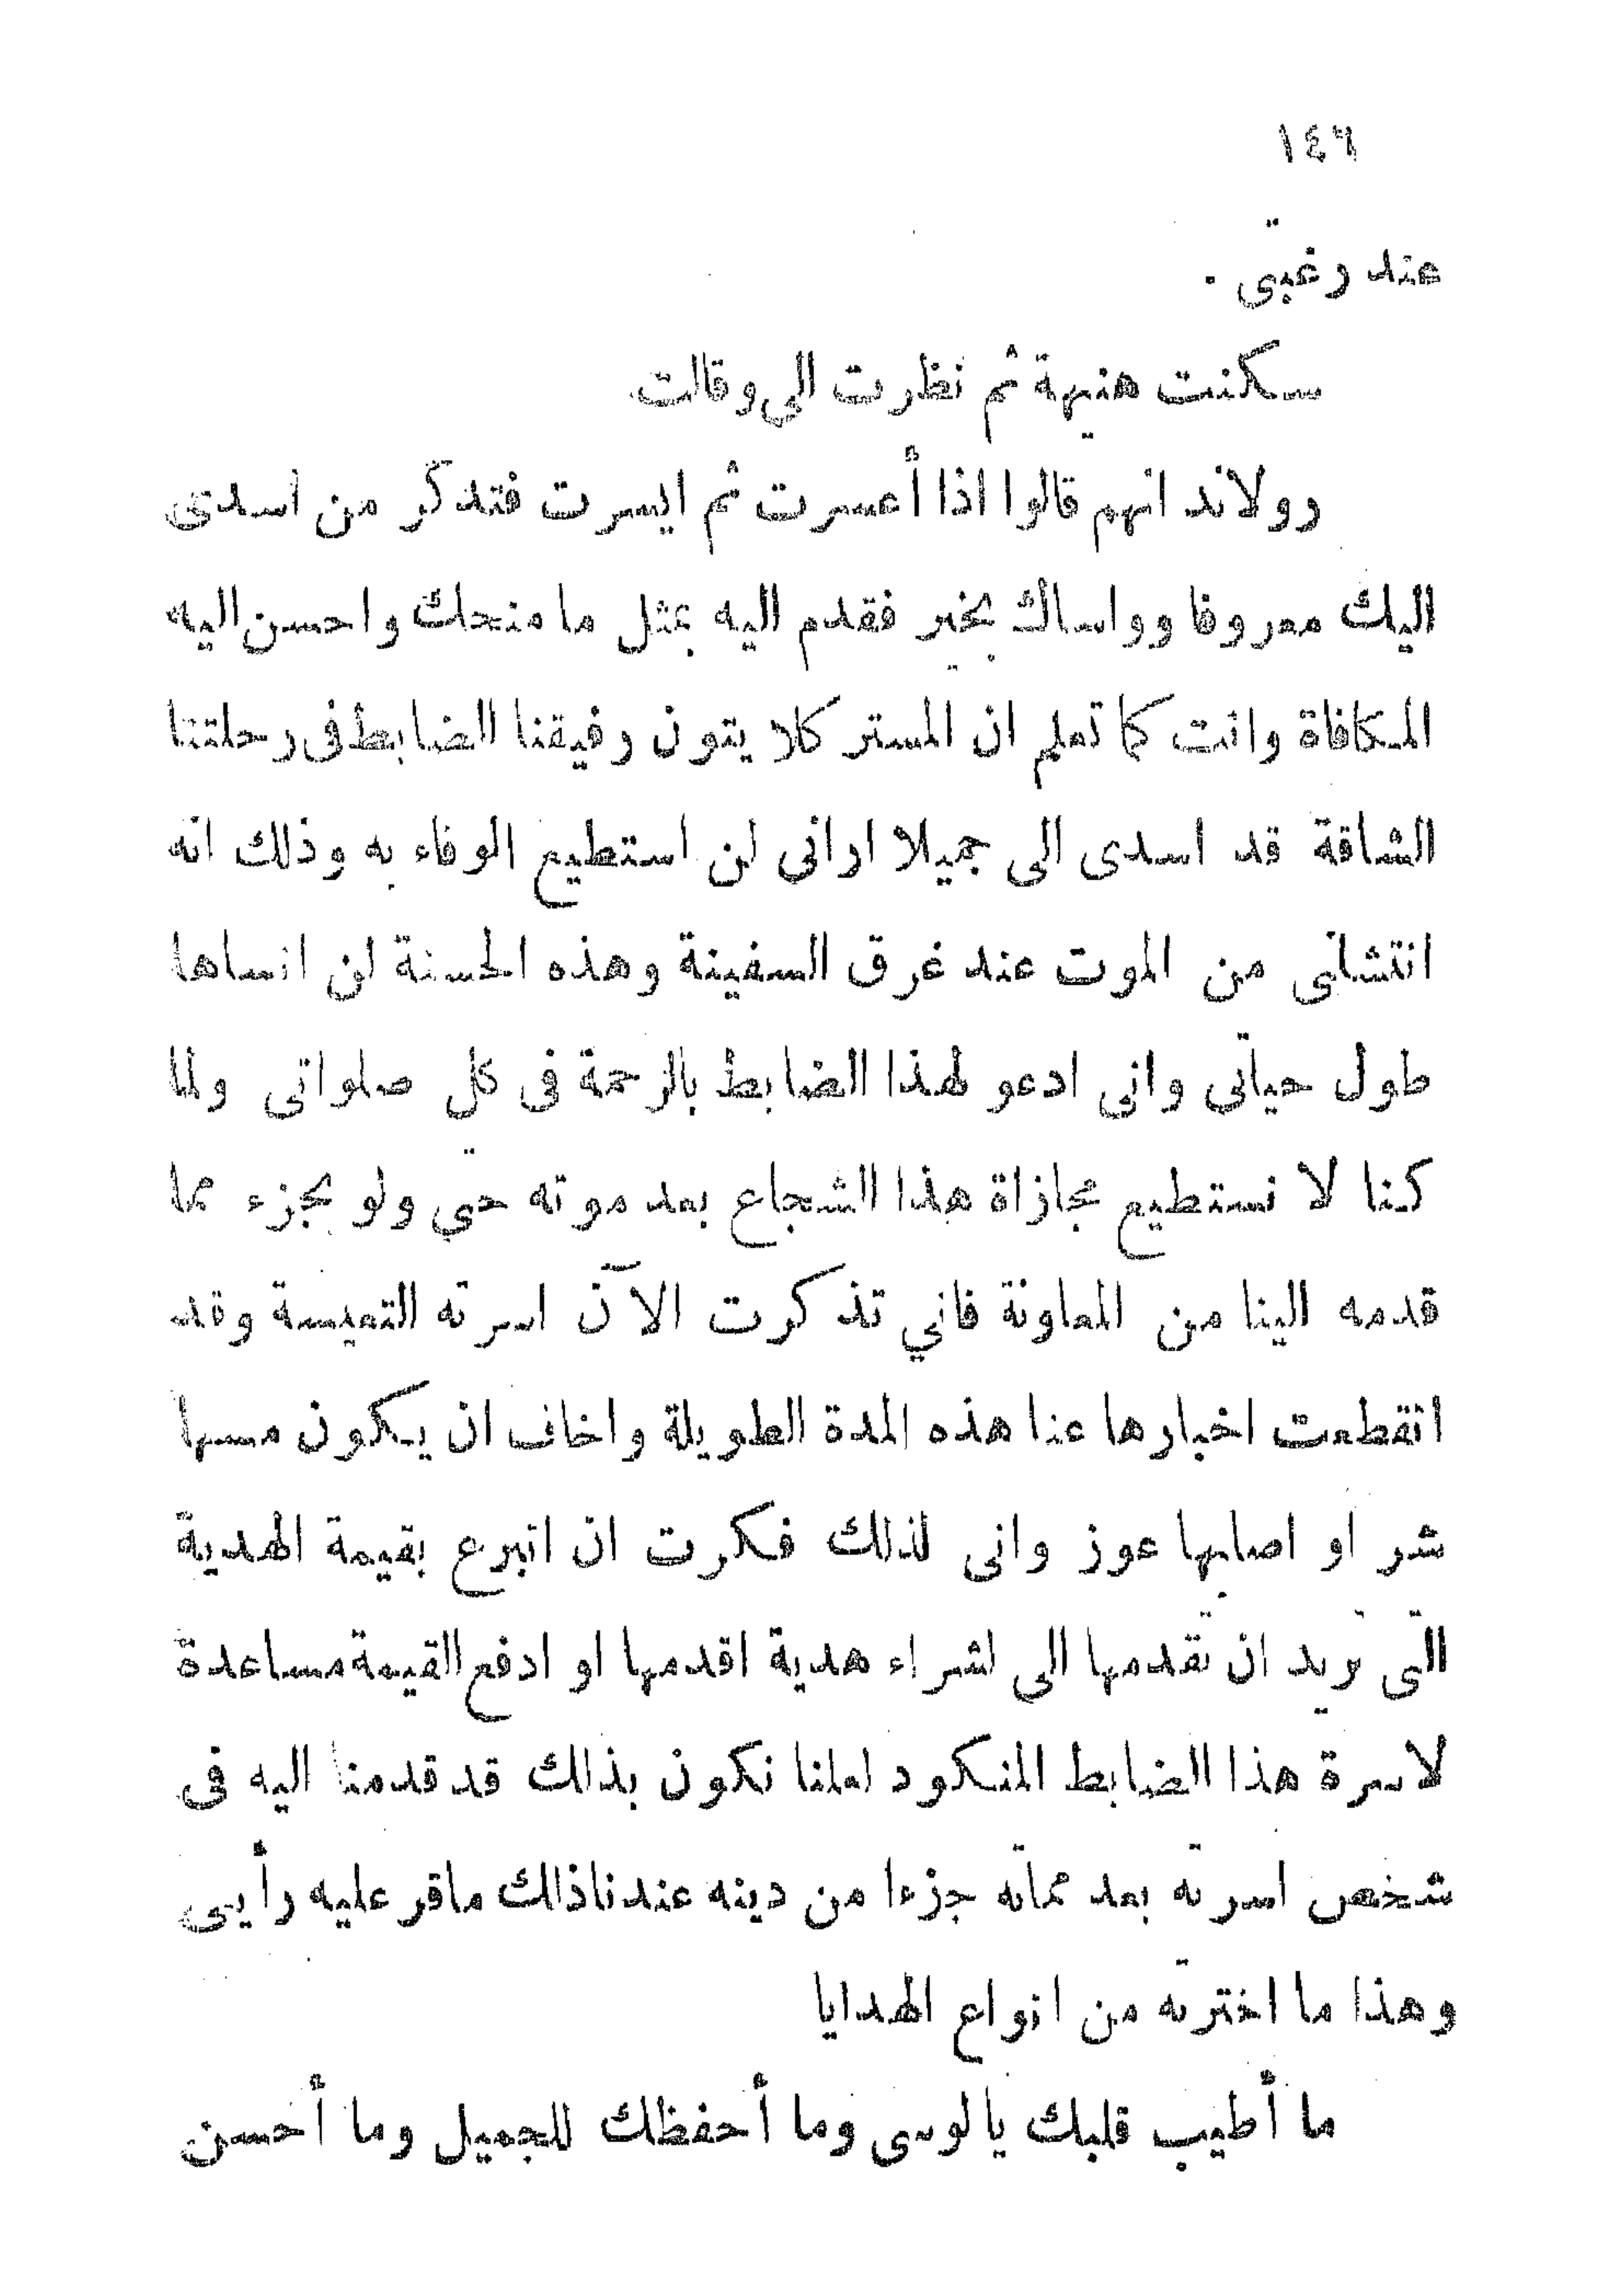 ١٤٦
عند رغبتى .
سكنت هنيهة ثم نظرت الى وقالت
رولاند انهم قالوا اذا أعسرت ثم ايسرت فتذكر من اسدى
اليك معروفا وواساك بخير فقدم اليه بمثل ما منحك واحسن اليه
المكافاة وانت كما تعلم ان المستر كلايتون رفيقنا الضابط فى رحلتنا
الشاقة قد اسدى الى جميلا ارانى لن استطيع الوفاء به وذلك انه
انتشلنى من الموت عند غرق السفينة وهذه الحسنة لن انساها
طول حياتى وانى ادعو لهذا الضابط بالرحمة فى كل صلواتى ولما
كنا لا نستطيع مجازاة هذا الشجاع بعد موته حتي ولو بجزء مما
قدمه الينا من المعاونة فاني تذكرت الآن اسرته التعيسة وقد
انقطعت اخبارها عنا هذه المدة الطويلة واخاف ان يكون مسها
شر او اصابها عوز وانى لذلك فكرت ان اتبرع بقيمة الهدية
التى تريد ان تقدمها الى لشراء هدية اقدمها او ادفع القيمة مساعدة
لاسرة هذا الضابط المنكود لعلنا نكون بذلك قد قدمنا اليه فى
شخص اسرته بعد مماته جزءا من دينه عندنا ذلك ماقر عليه رأيى
وهذا ما اخترته من انواع الهدايا
ما أطيب قلبك يا لوسى وما أحفظك للجميل وما أحسن